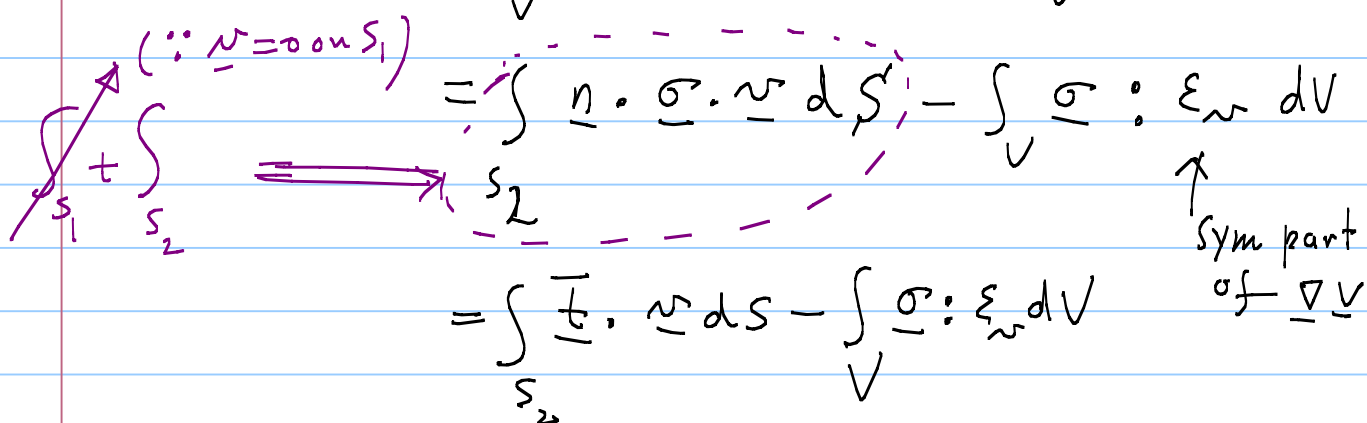 V V
(∵ v = 0 on S₁)
∫_S₁ + ∫_S₂ ⟹ = ∫_S₂ n · σ · v dS − ∫_V σ : ε_v dV
↑
Sym part
of ∇ v
= ∫_S₂ t̄ · v dS − ∫_V σ : ε_v dV